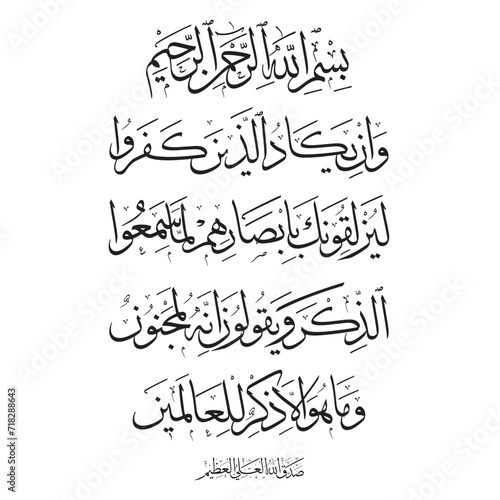 بِسْمِ اللهِ الرَّحْمٰنِ الرَّحِيْمِ
وَاِنْ يَكَادُ الَّذِيْنَ كَفَرُوْا
لَيُزْلِقُوْنَكَ بِاَبْصَارِهِمْ لَمَّا سَمِعُوا
الذِّكْرَ وَيَقُوْلُوْنَ اِنَّهُ لَمَجْنُوْنٌ
وَمَا هُوَ اِلَّا ذِكْرٌ لِلْعَالَمِيْنَ
صدق الله العلي العظيم
Adobe Stock | #718288643